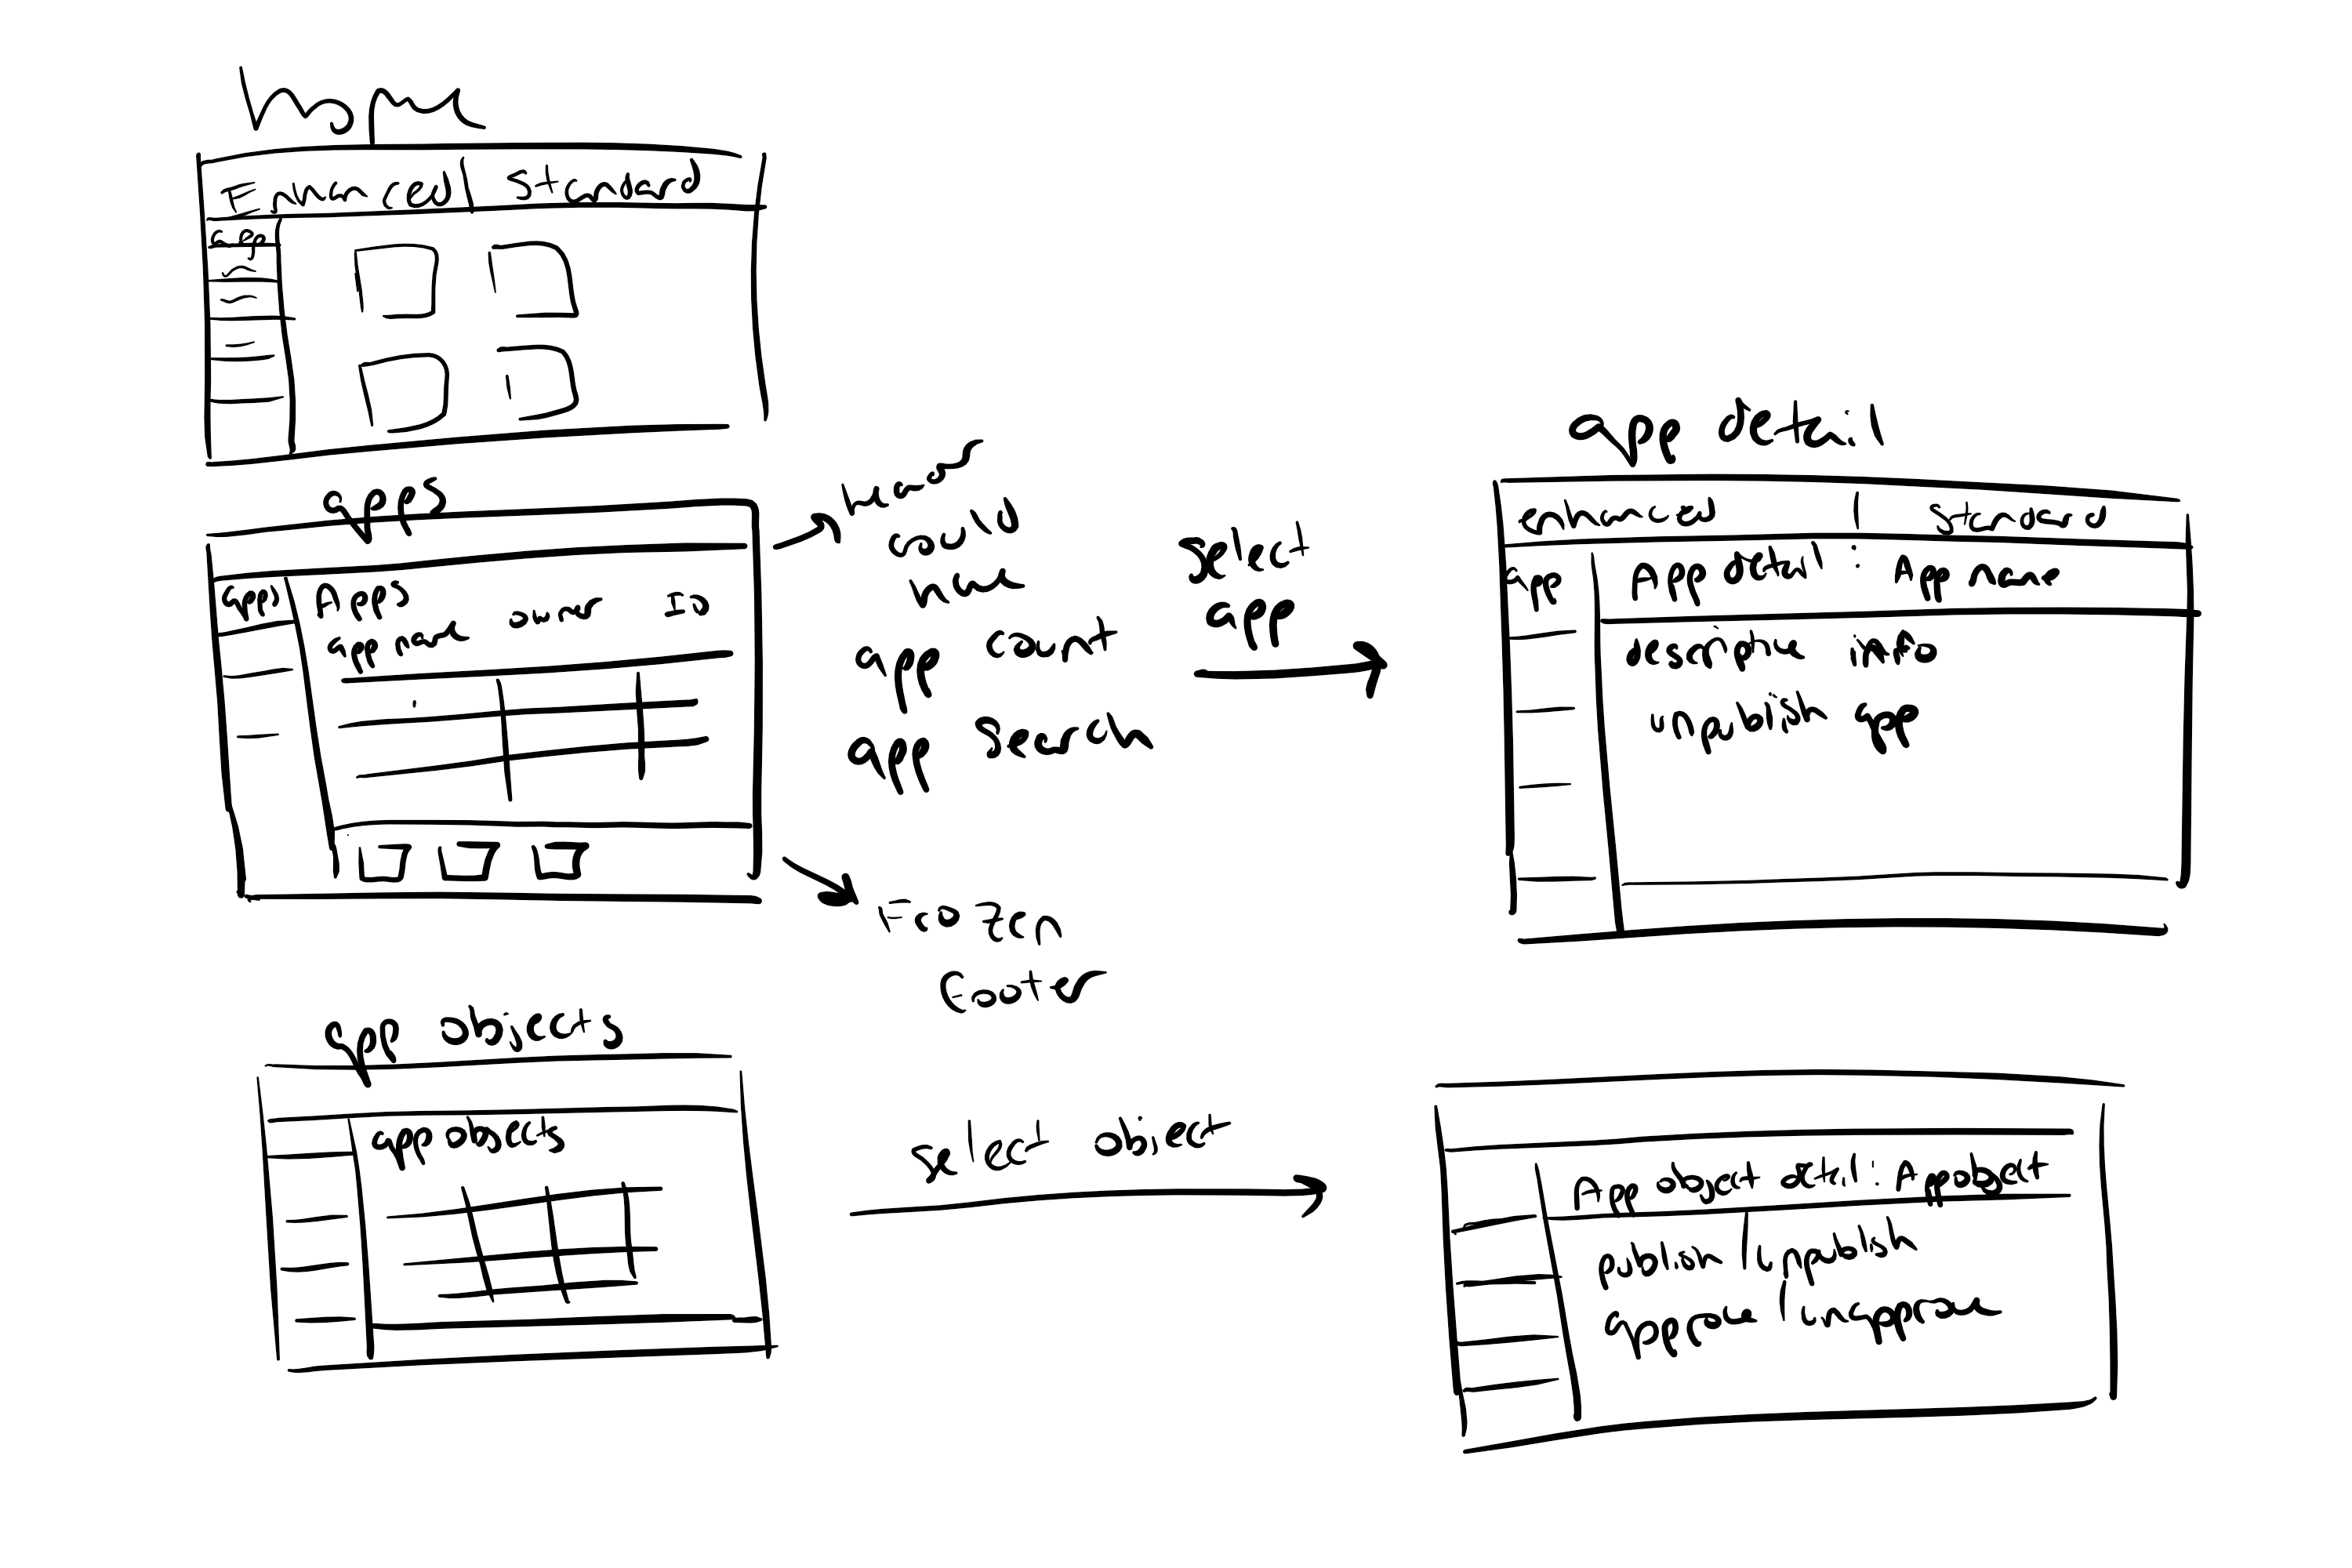 home
Enhanced | Standard
app
apps
apps
Apps
app name owner ID
header
could
have
app count
app search
select
app
Frozen
footer
app detail
enhanced | standard
app
App detail : App name
descriptive info
unpublish app
app objects
app objects
select object
App object detail : App object
publish / unpublish
approve / unapprove